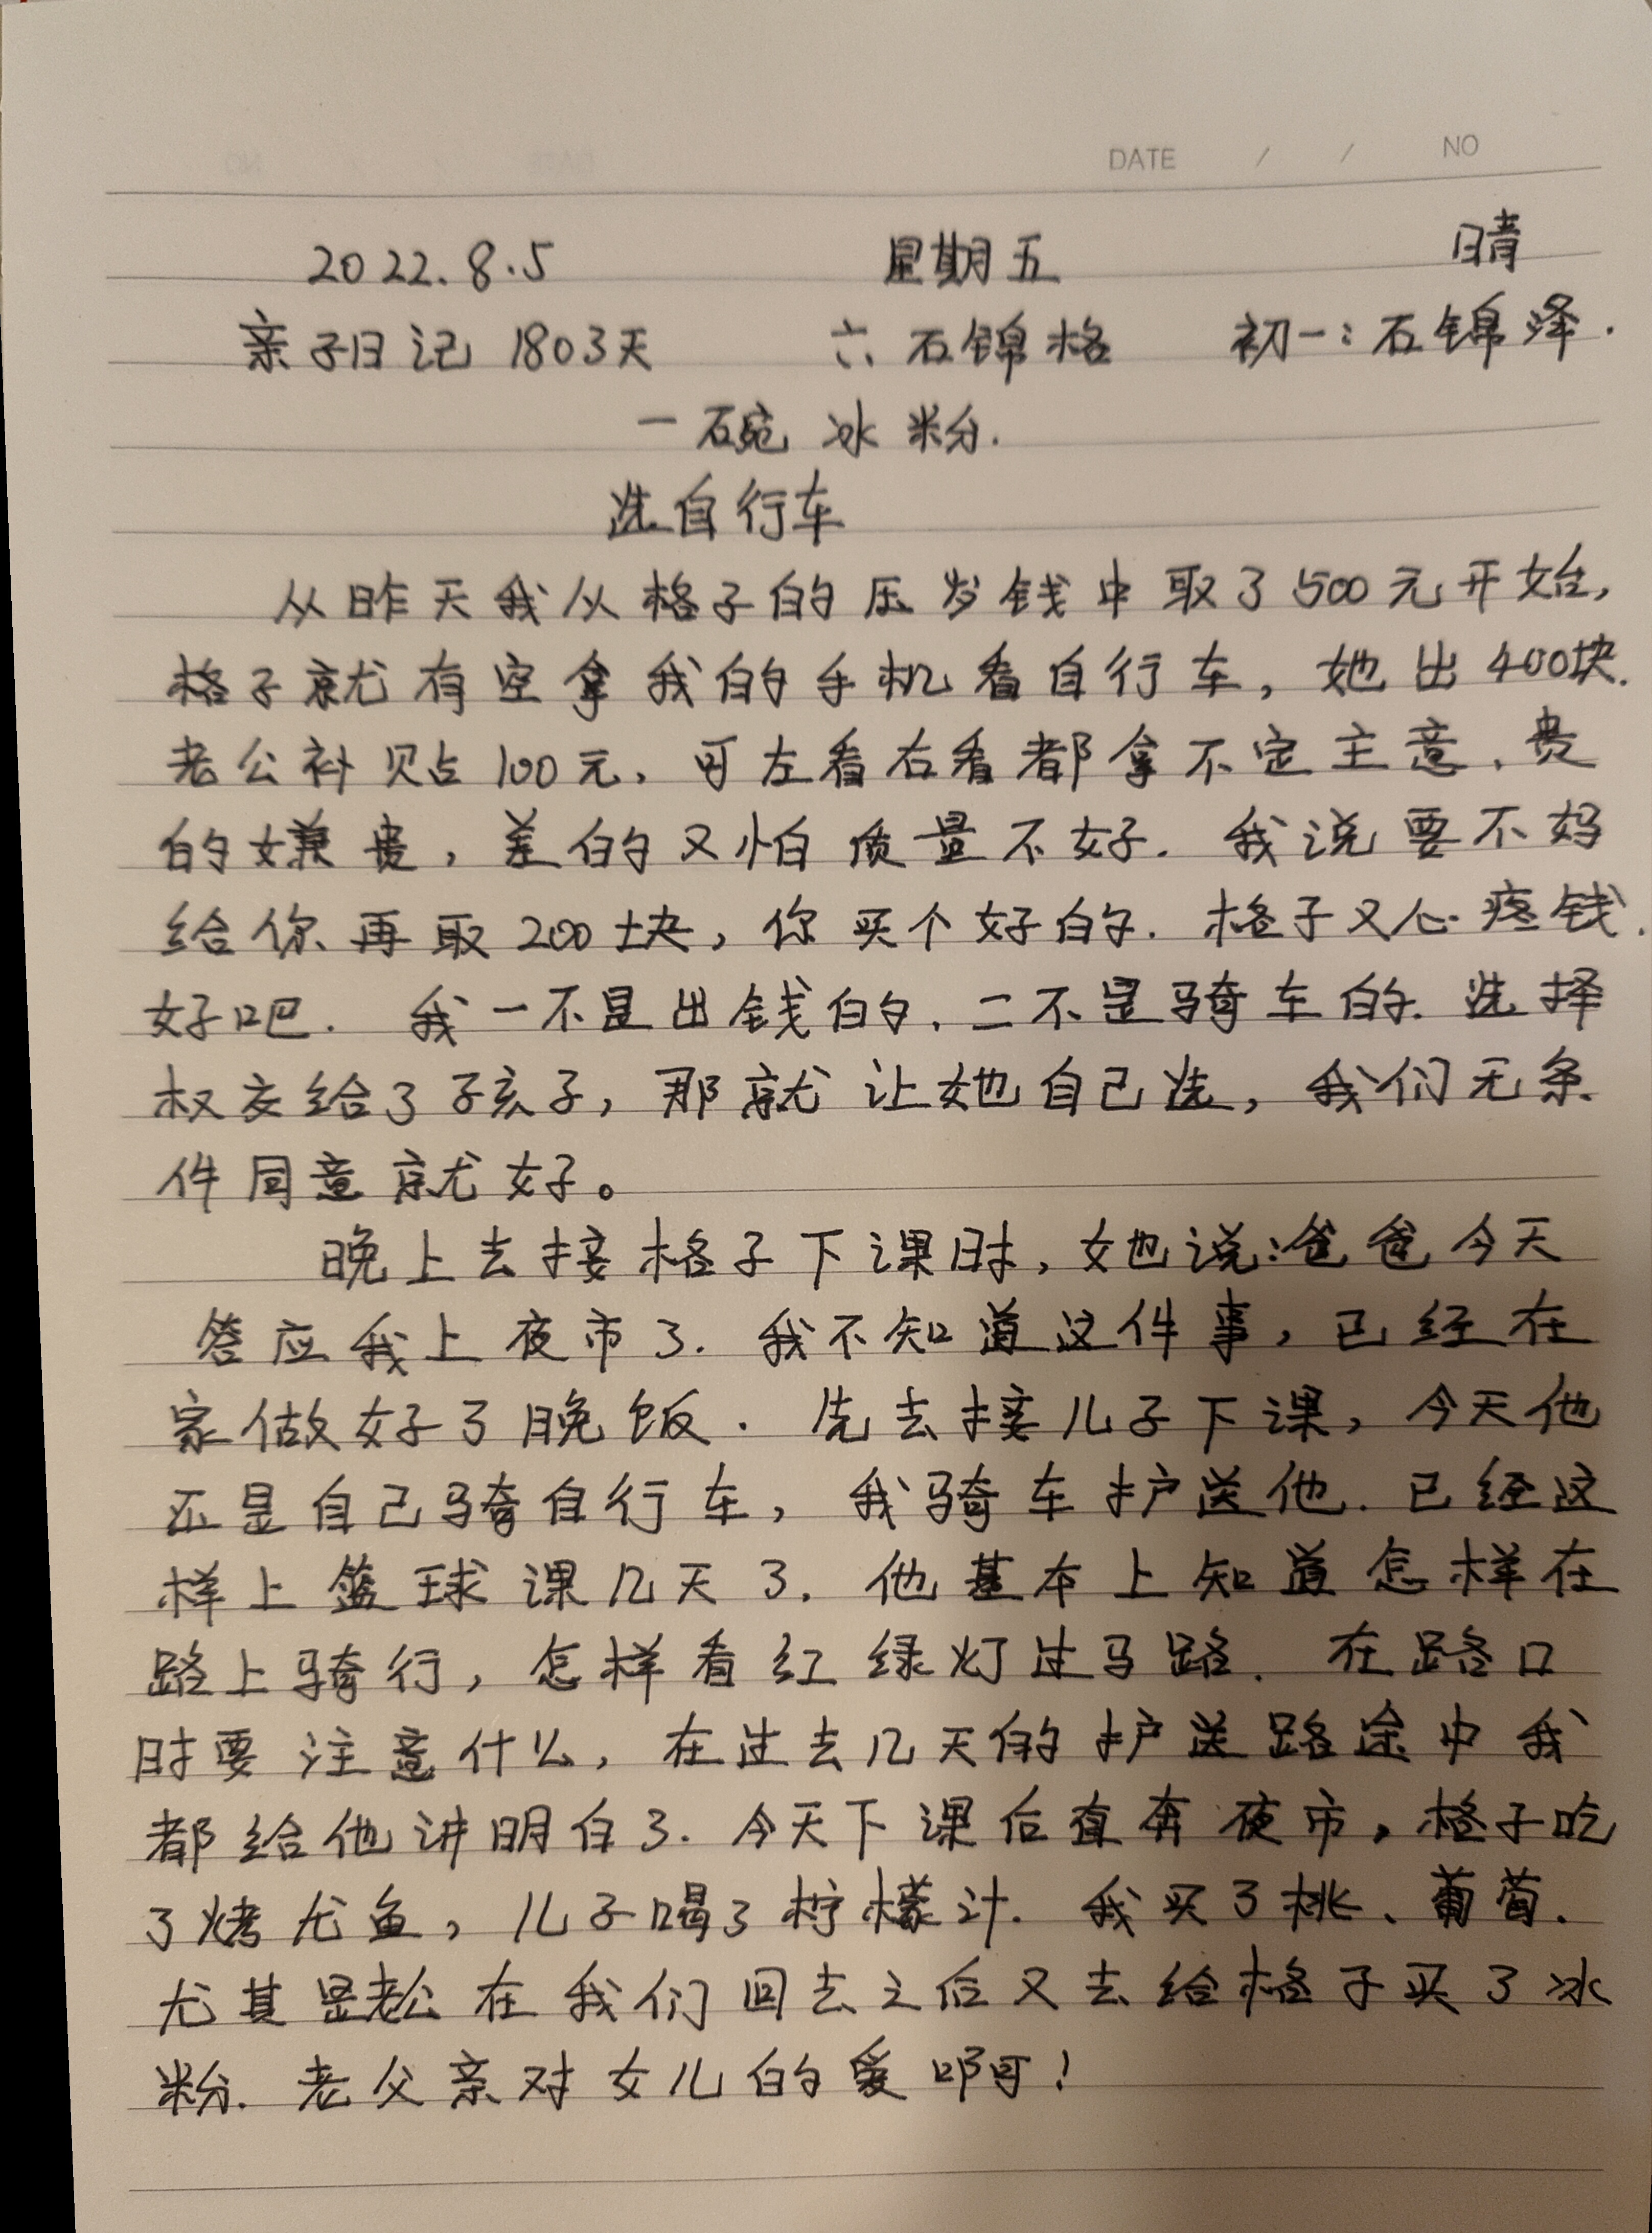 DATE / / NO
2022.8.5 星期五 晴
亲子日记 1803天 六、石锦格 初一:石锦泽.
一碗冰粉.
选自行车
从昨天我从格子的压岁钱中取了500元开始,
格子就有空拿我的手机看自行车,她出400块.
老公补贴100元,可左看右看都拿不定主意、贵
的嫌贵,差的又怕质量不好.我说要不妈
给你再取200块,你买个好的.格子又心疼钱.
好吧.我一不是出钱的,二不是骑车的.选择
权交给了孩子,那就让她自己选,我们无条
件同意就好。
晚上去接格子下课时,她说:爸爸今天
答应我上夜市了.我不知道这件事,已经在
家做好了晚饭.先去接儿子下课,今天他
还是自己骑自行车,我骑车护送他.已经这
样上篮球课几天了.他基本上知道怎样在
路上骑行,怎样看红绿灯过马路.在路口
时要注意什么,在过去几天的护送路途中我
都给他讲明白了.今天下课后直奔夜市,格子吃
了烤尤鱼,儿子喝了柠檬汁.我买了桃、葡萄.
尤其是老公在我们回去之后又去给格子买了冰
粉.老父亲对女儿的爱啊!